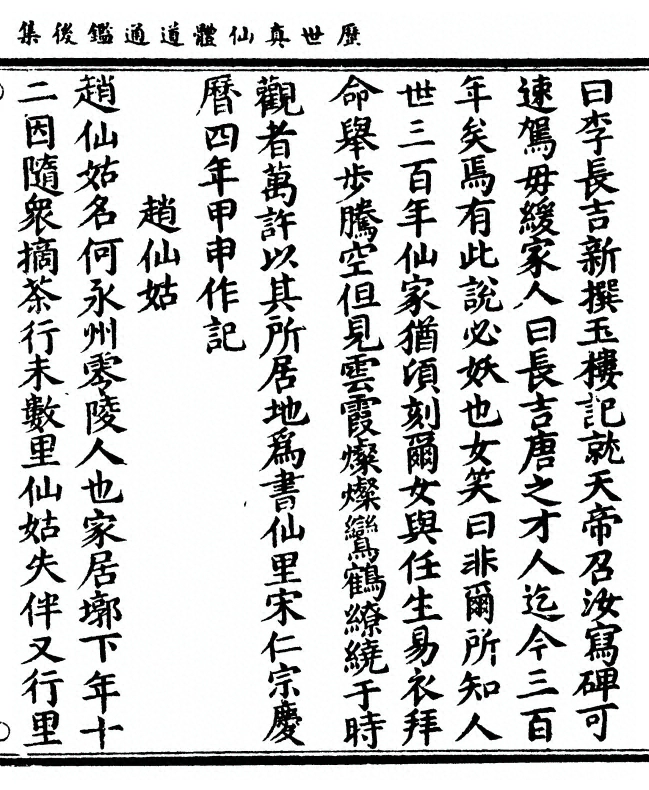 歷世真仙體道通鑑後集
曰李長吉新撰玉樓記就天帝召汝寫碑可
速駕毋緩家人曰長吉唐之才人迄今三百
年矣焉有此說必妖也女笑曰非爾所知人
世三百年仙家猶頃刻爾女與任生易衣拜
命舉步騰空但見雲霞燦燦鸞鶴繚繞于時
觀者萬許以其所居地爲書仙里宋仁宗慶
曆四年甲申作記
趙仙姑
趙仙姑名何永州零陵人也家居墎下年十
二因隨衆摘茶行未數里仙姑失伴又行里